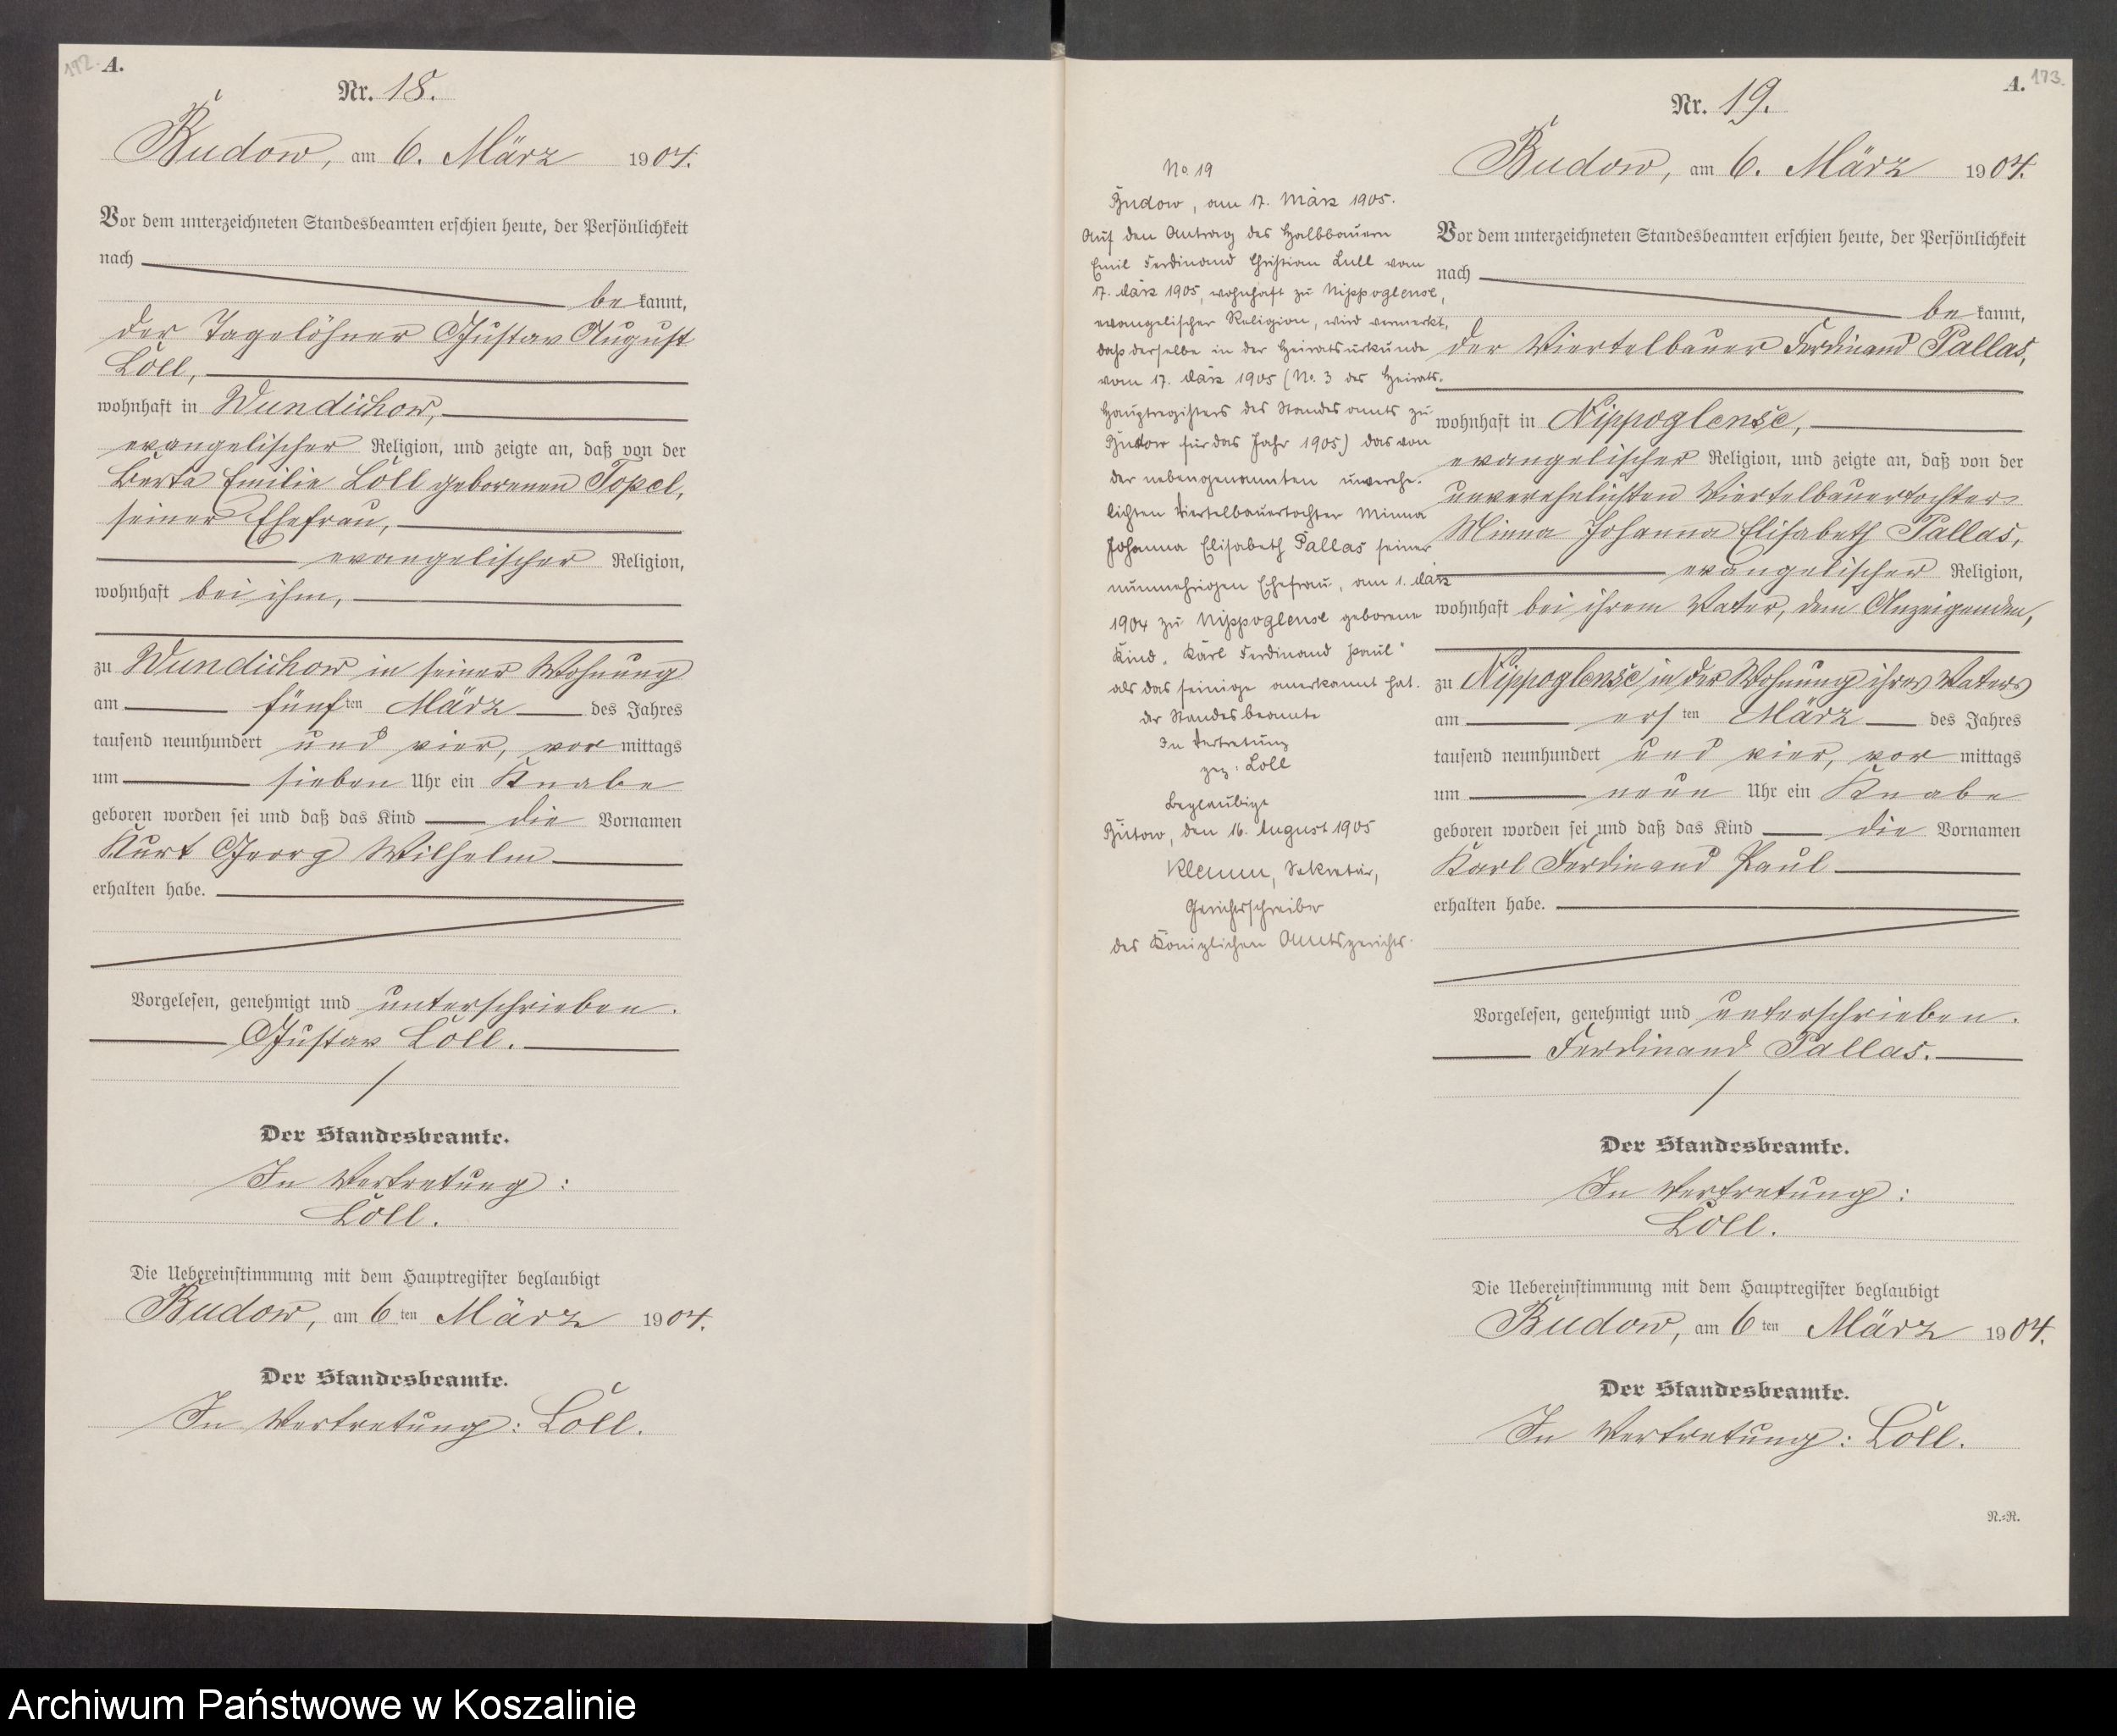 192. A.
Nr. 18.
Budow, am 6. März 1904.
Vor dem unterzeichneten Standesbeamten erschien heute, der Persönlichkeit
nach
be kannt,
der Tagelöhner Gustav August
Löll,
wohnhaft in Wundichow,
evangelischer Religion, und zeigte an, daß von der
Berta Emilie Löll geborenen Topel,
seiner Ehefrau,
evangelischer Religion,
wohnhaft bei ihm,
zu Wundichow in seiner Wohnung
am fünf ten März des Jahres
tausend neunhundert und vier, vor mittags
um sieben Uhr ein Knabe
geboren worden sei und daß das Kind die Vornamen
Kurt Georg Wilhelm
erhalten habe.
Vorgelesen, genehmigt und unterschrieben.
Gustav Löll.
Der Standesbeamte.
In Vertretung:
Löll.
Die Uebereinstimmung mit dem Hauptregister beglaubigt
Budow, am 6 ten März 1904.
Der Standesbeamte.
In Vertretung: Löll.
A. 173.
Nr. 19.
Budow, am 6. März 1904.
Vor dem unterzeichneten Standesbeamten erschien heute, der Persönlichkeit
nach
be kannt,
der Viertelbauer Ferdinand Pallas,
wohnhaft in Nippoglense,
evangelischer Religion, und zeigte an, daß von der
unverehelichten Viertelbauertochter
Minna Johanna Elisabeth Pallas,
evangelischer Religion,
wohnhaft bei ihrem Vater, dem Anzeigenden,
zu Nippoglense in der Wohnung ihres Vaters
am ers ten März des Jahres
tausend neunhundert und vier, vor mittags
um neun Uhr ein Knabe
geboren worden sei und daß das Kind die Vornamen
Karl Ferdinand Paul
erhalten habe.
Vorgelesen, genehmigt und unterschrieben.
Ferdinand Pallas.
Der Standesbeamte.
In Vertretung:
Löll.
Die Uebereinstimmung mit dem Hauptregister beglaubigt
Budow, am 6 ten März 1904.
Der Standesbeamte.
In Vertretung: Löll.
N.=R.
No 19
Budow, am 17. März 1905.
Auf den Antrag des Halbbauern
Emil Ferdinand Christian Lull vom
17. März 1905, wohnhaft zu Nippoglense,
evangelischer Religion, wird vermerkt,
daß derselbe in der Heiratsurkunde
vom 17. März 1905 (No. 3 des Heirats-
Hauptregisters des Standesamts zu
Budow für das Jahr 1905) das von
der nebengenannten unverehe-
lichten Viertelbauertochter Minna
Johanna Elisabeth Pallas seiner
nunmehrigen Ehefrau, am 1. März
1904 zu Nippoglense geborene
Kind, Karl Ferdinand Paul"
als das seinige anerkannt hat.
der Standesbeamte
In Vertretung
gez: Löll
Beglaubigt
Bütow, den 16. August 1905
Klemm, Sekretär,
Gerichtsschreiber
des Königlichen Amtsgerichts.
Archiwum Państwowe w Koszalinie